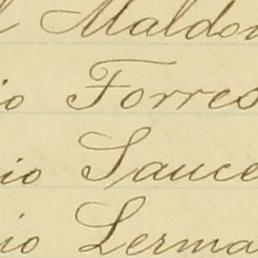 l Maldo
io Torres
io Sauce
io Lerma